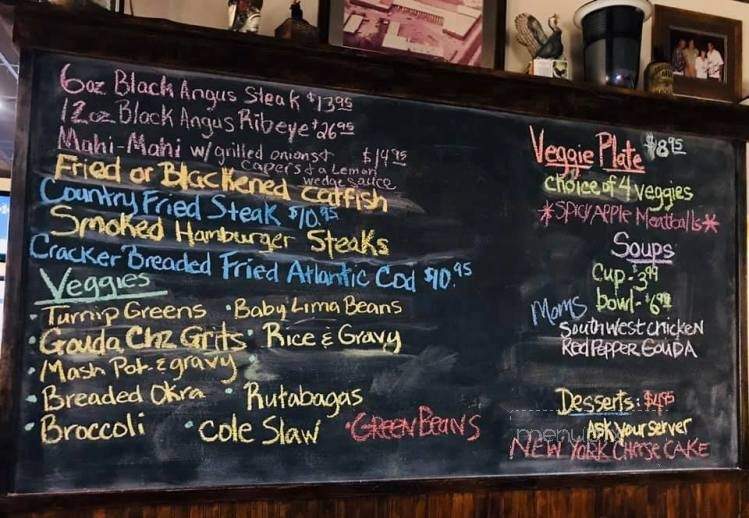 6oz Black Angus Steak $13.95
12oz Black Angus Ribeye $26.95
Mahi-Mahi w/ grilled onions + $14.95
capers + a Lemon
wedge sauce
Fried or Blackened Catfish
Country Fried Steak $10.95
Smoked Hamburger Steaks
Cracker Breaded Fried Atlantic Cod $10.95
Veggies
• Turnip Greens • Baby Lima Beans
• Gouda Chz Grits • Rice & Gravy
• Mash Pot. & gravy
• Breaded Okra • Rutabagas
• Broccoli • Cole Slaw • Green Beans
Veggie Plate $8.95
choice of 4 veggies
*Spicy Apple Meatballs*
Soups
Cup - 3.99
Moms bowl - $6.99
Southwest Chicken
Red Pepper Gouda
Desserts: $4.95
Ask your server
New York Cheese Cake